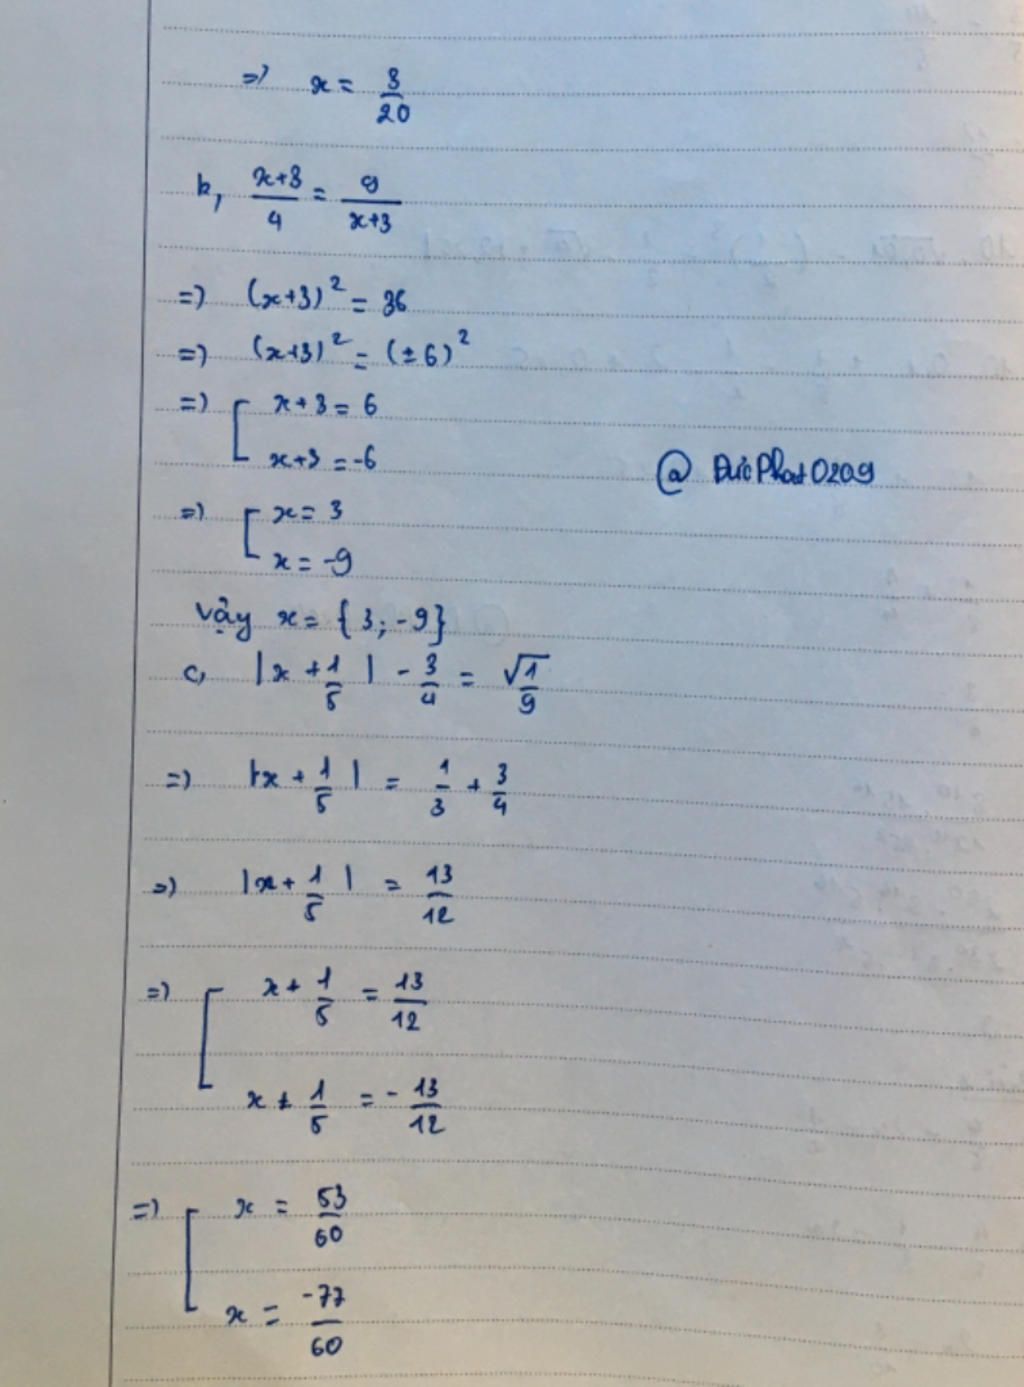 => x = 3/20
b, (x+3)/4 = 9/(x+3)
=> (x+3)² = 36
=> (x+3)² = (±6)²
=> [ x+3 = 6
x+3 = -6
@ ĐứcPhat0209
=> [ x = 3
x = -9
Vậy x = {3; -9}
c, |x + 1/5| - 3/4 = √1/9
=> |x + 1/5| = 1/3 + 3/4
=> |x + 1/5| = 13/12
=> [ x + 1/5 = 13/12
x + 1/5 = - 13/12
=> [ x = 53/60
x = -77/60